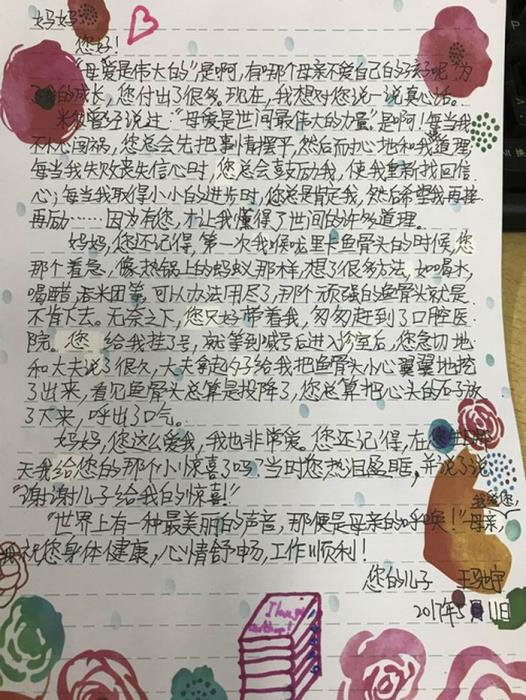 妈妈：
您好！
“母爱是伟大的”是啊，有哪个母亲不爱自己的孩子呢？为
了我的成长，您付出了很多。现在，我想对您说一说真心话。
米尔曾经说过：“母爱是世间最伟大的力量”是啊！每当我
不小心闯祸，您总会先把事情摆平，然后耐心地和我道理
每当我失败丧失信心时，您总会鼓励我，使我重新找回信
心；每当我取得小小的进步时，您总是肯定我，然后希望我再接
再励……因为有您，才让我懂得了世间的许多道理。
妈妈，您还记得，第一次我喉咙里卡鱼骨头的时候，您
那个着急，像热锅上的蚂蚁那样，想了很多方法，如喝水，
喝醋，米团等，可以办法用尽了，那个顽强的鱼骨头就是
不肯下去。无奈之下，您只好带着我，匆匆赶到了口腔医
院。您给我挂了号，就等到号后进入诊室后，您急切地
和大夫说了很久，大夫拿起勺子给我把鱼骨头小心翼翼地挖
了出来，看见鱼骨头总算是投降了，您总算把心头的石子放
了下来，呼出了口气。
妈妈，您这么爱我，我也非常爱。您还记得，在您生日那
天我给您的那个小惊喜了吗？当时您热泪盈眶，并说了说
“谢谢儿子给我的惊喜！”
我爱您，
“世界上有一种最美丽的声音，那便是母亲的呼唤！”母亲，
我祝您身体健康，心情舒畅，工作顺利！
您的儿子 王宇
2017年5月11日
I love
mother!